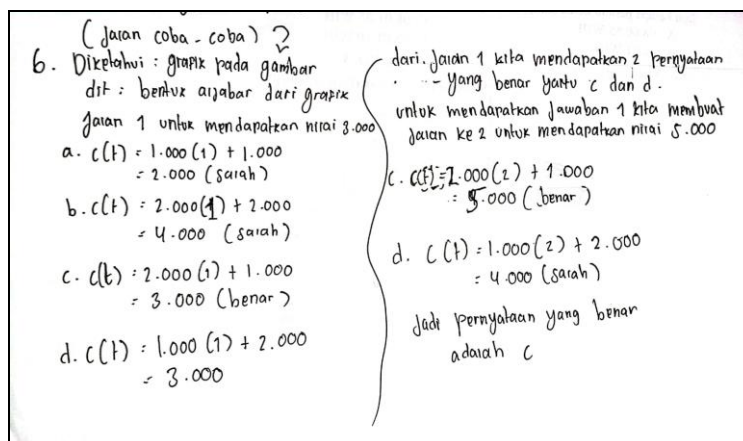 (jalan coba-coba)?
6. Diketahui : grafik pada gambar
dit : bentuk aljabar dari grafik
jalan 1 untuk mendapatkan nilai 3.000
a. c(t) = 1.000 (1) + 1.000
= 2.000 (salah)
b. c(t) = 2.000 (1) + 2.000
= 4.000 (salah)
c. c(t) = 2.000 (1) + 1.000
= 3.000 (benar)
d. c(t) = 1.000 (1) + 2.000
= 3.000
dari jalan 1 kita mendapatkan 2 pernyataan
yang benar yaitu c dan d.
untuk mendapatkan jawaban 1 kita membuat
jalan ke 2 untuk mendapatkan nilai 5.000
c. c(t) = 2.000 (2) + 1.000
= 5.000 (benar)
d. c(t) = 1.000 (2) + 2.000
= 4.000 (salah)
Jadi pernyataan yang benar
adalah c